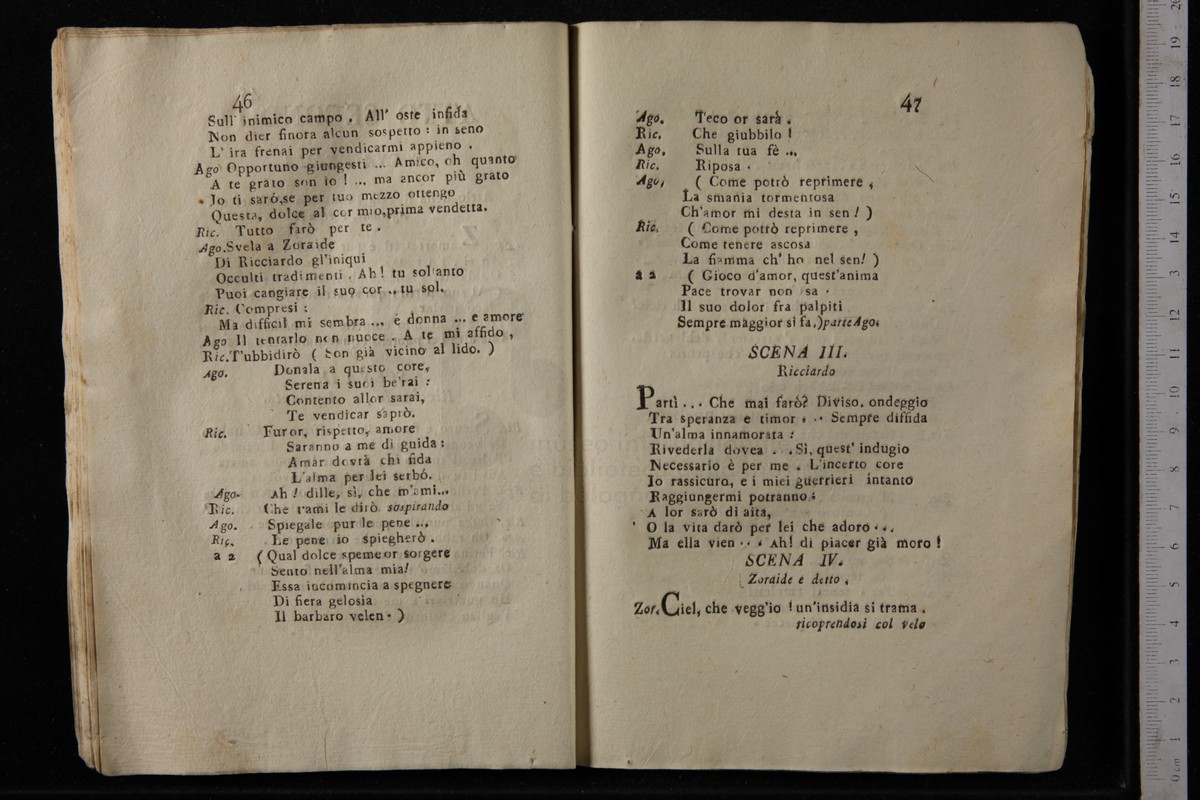 46
Sull' inimico campo . All' oste infida
Non dier finora alcun sospetto : in seno
L' ira frenai per vendicarmi appieno .
Ago Opportuno giungesti ... Amico, oh quanto
A te grato son io ! ... ma ancor più grato
Jo ti sarò,se per tuo mezzo ottengo
Questa, dolce al cor mio,prima vendetta.
Ric. Tutto farò per te .
Ago.Svela a Zoraide
Di Ricciardo gl'iniqui
Occulti tradimenti . Ah! tu soltanto
Puoi cangiare il suo cor .. tu sol.
Ric. Compresi :
Ma difficil mi sembra ... è donna ... e amore
Ago Il tentarlo non nuoce . A te mi affido ,
Ric.T'ubbidirò ( Son già vicino al lido. )
Ago. Donala a questo core,
Serena i suoi be'rai :
Contento allor sarai,
Te vendicar saprò.
Ric. Furor, rispetto, amore
Saranno a me di guida :
Amar dovrà chi fida
L'alma per lei serbò.
Ago. Ah ! dille, sì, che m'ami...
Ric. Che t'ami le dirò sospirando
Ago. Spiegale pur le pene ...
Ric. Le pene io spiegherò .
a 2 ( Qual dolce speme or sorgere
Sento nell'alma mia!
Essa incomincia a spegnere
Di fiera gelosia
Il barbaro velen . )
47
Ago. Teco or sarà .
Ric. Che giubbilo !
Ago. Sulla tua fè ...
Ric. Riposa .
Ago, ( Come potrò reprimere ,
La smania tormentosa
Ch'amor mi desta in sen ! )
Ric. ( Come potrò reprimere ,
Come tenere ascosa
La fiamma ch' ho nel sen! )
a 2 ( Gioco d'amor, quest'anima
Pace trovar non sa .
Il suo dolor fra palpiti
Sempre maggior si fa.)parte Ago.
SCENA III.
Ricciardo
Partì . . . Che mai farò? Diviso. ondeggio
Tra speranza e timor . .. Sempre diffida
Un'alma innamorata :
Rivederla dovea . . Sì, quest' indugio
Necessario è per me . L'incerto core
Io rassicuro, e i miei guerrieri intanto
Raggiungermi potranno :
A lor sarò di aita,
O la vita darò per lei che adoro . . .
Ma ella vien . . . Ah! di piacer già moro !
SCENA IV.
Zoraide e detto .
Zor. Ciel, che vegg'io ! un'insidia si trama .
ricoprendosi col velo